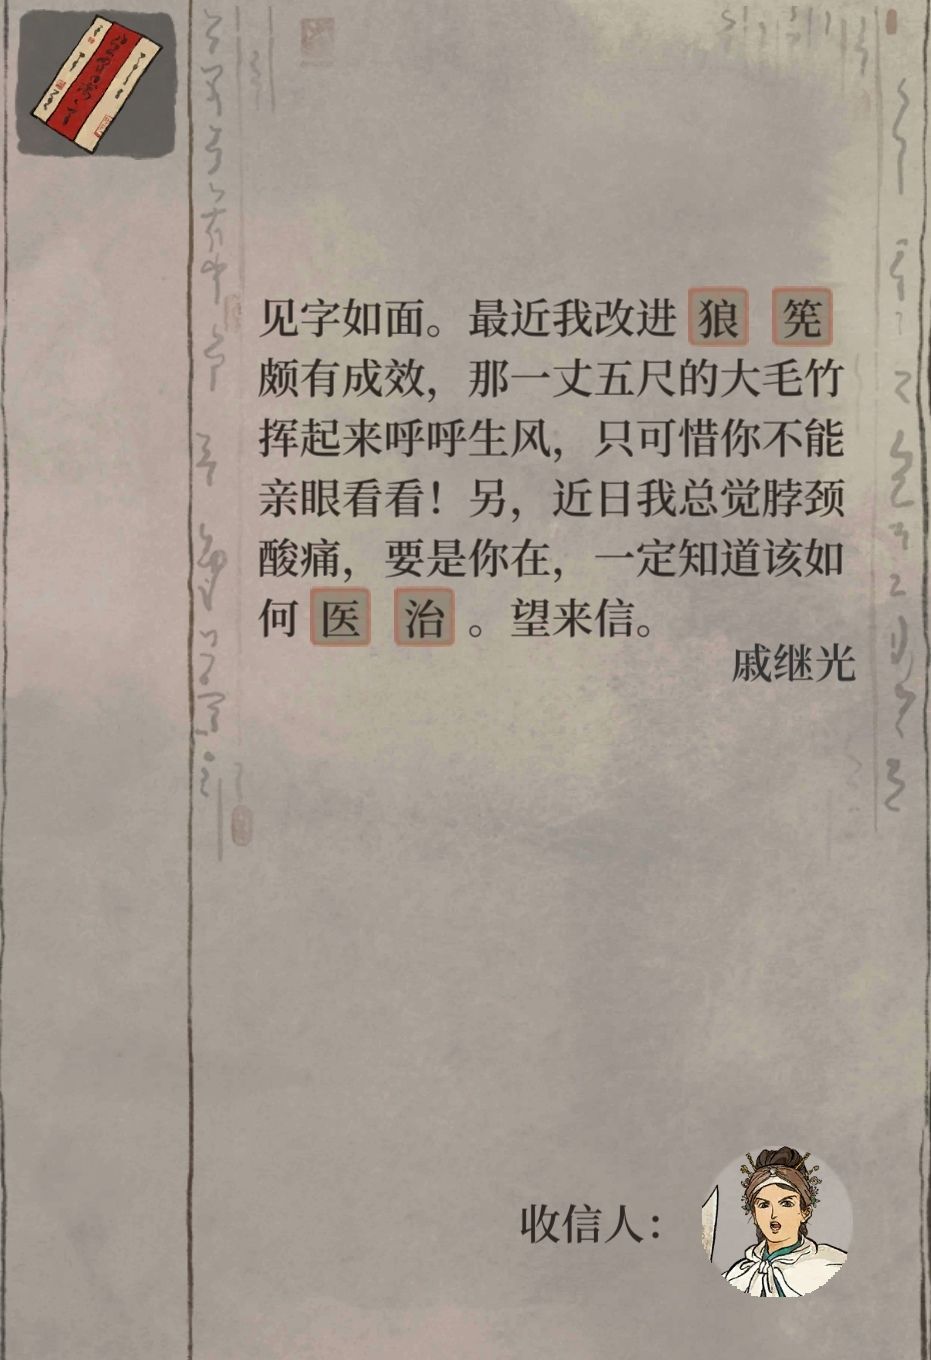 见字如面。最近我改进 狼 筅
颇有成效，那一丈五尺的大毛竹
挥起来呼呼生风，只可惜你不能
亲眼看看！另，近日我总觉脖颈
酸痛，要是你在，一定知道该如
何 医 治 。望来信。
戚继光
收信人：